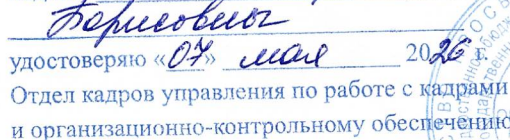 Борисовны
удостоверяю «07» мая 2026 г.
Отдел кадров управления по работе с кадрами
и организационно-контрольному обеспечению